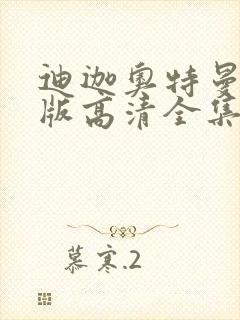 迪迦奥特曼
版高清全集
慕寒.2